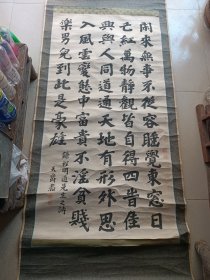 閒來無事不從容睡覺東窓日
已紅萬物靜觀皆自得四旹佳
興與人同道通天地有形外思
入風雲變態中富貴不淫貧賤
樂男兒到此是豪雄
錄程明道先生之詩